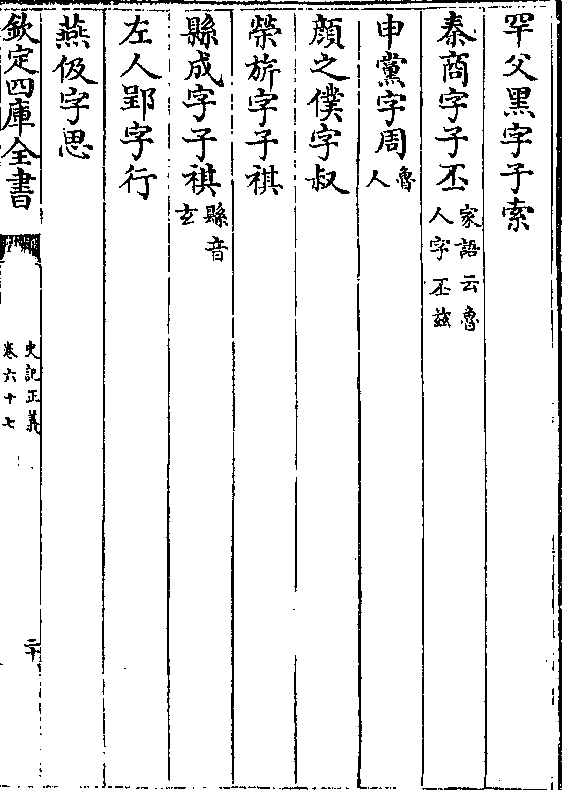 罕父黒字子索
秦商字子丕家語云魯人字丕兹
申黨字周魯人
顔之僕字叔
榮旂字子祺
縣成字子祺縣音玄
左人郢字行
燕伋字思
欽定四庫全書
史記正義
卷六十七
二十